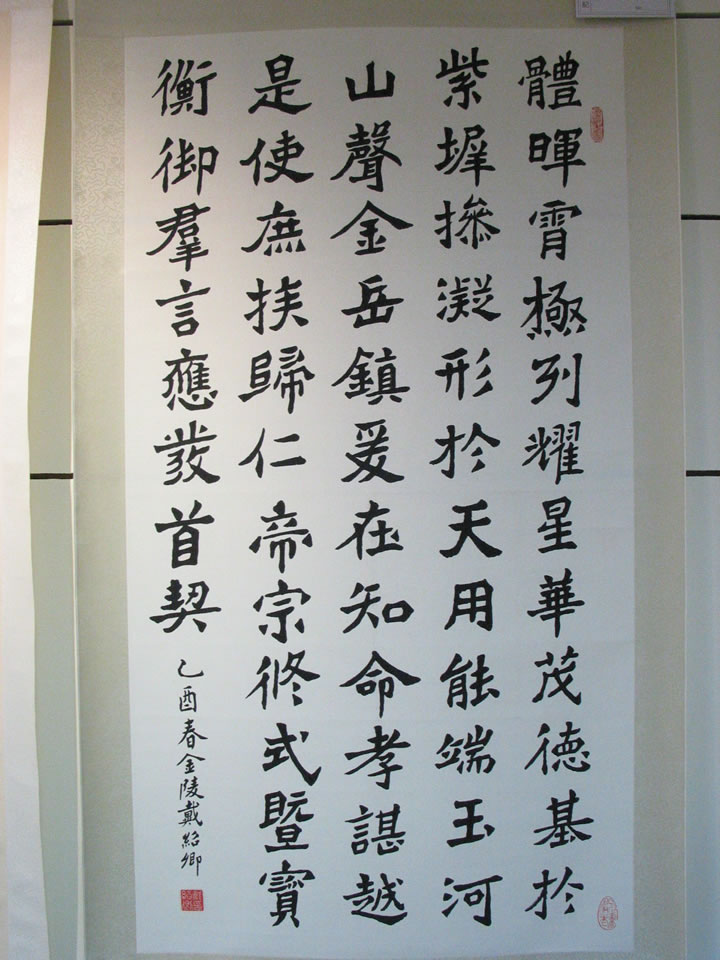 體暉霄極列耀星華茂德基於
紫墀摻凝形於天用能端玉河
山聲金岳鎮爰在知命孝諶越
是使庶族歸仁帝宗脩式暨寳
衡御羣言應發首契
乙酉春金陵戴紹卿